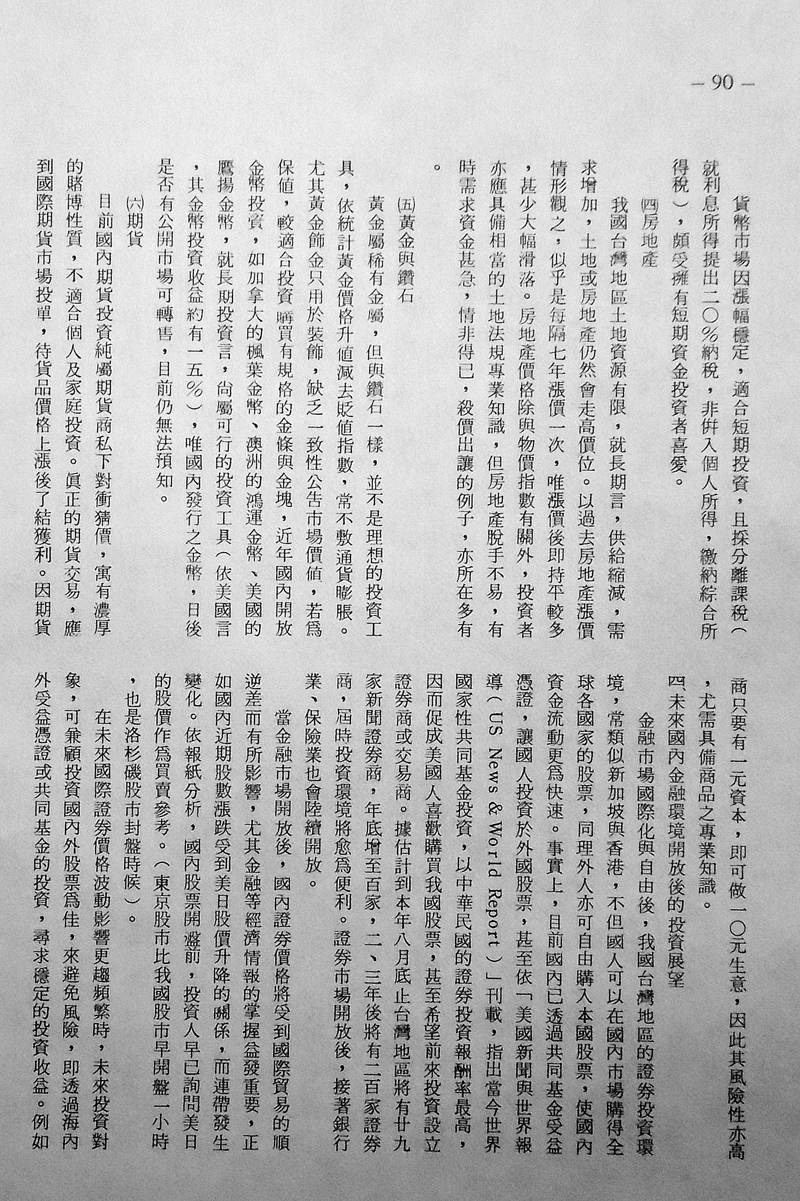 — 90 —
貨幣市場因漲幅穩定，適合短期投資，且採分離課稅（
就利息所得提出二〇％納稅，非併入個人所得，繳納綜合所
得稅），頗受擁有短期資金投資者喜愛。
㈣房地產
我國台灣地區土地資源有限，就長期言，供給縮減，需
求增加，土地或房地產仍然會走高價位。以過去房地產漲價
情形觀之，似乎是每隔七年漲價一次，唯漲價後即持平較多
，甚少大幅滑落。房地產價格除與物價指數有關外，投資者
亦應具備相當的土地法規專業知識，但房地產脫手不易，有
時需求資金甚急，情非得已，殺價出讓的例子，亦所在多有
。
㈤黃金與鑽石
黃金屬稀有金屬，但與鑽石一樣，並不是理想的投資工
具，依統計黃金價格升值減去貶值指數，常不敷通貨膨脹。
尤其黃金飾金只用於裝飾，缺乏一致性公告市場價值，若爲
保值，較適合投資購買有規格的金條與金塊，近年國內開放
金幣投資，如加拿大的楓葉金幣、澳洲的鴻運金幣、美國的
鷹揚金幣，就長期投資言，尚屬可行的投資工具（依美國言
，其金幣投資收益約有一五％），唯國內發行之金幣，日後
是否有公開市場可轉售，目前仍無法預知。
㈥期貨
目前國內期貨投資純屬期貨商私下對衝猜價，寓有濃厚
的賭博性質，不適合個人及家庭投資。眞正的期貨交易，應
到國際期貨市場投單，待貨品價格上漲後了結獲利。因期貨
商只要有一元資本，即可做一〇元生意，因此其風險性亦高
，尤需具備商品之專業知識。
四、未來國內金融環境開放後的投資展望
金融市場國際化與自由後，我國台灣地區的證券投資環
境，常類似新加坡與香港，不但國人可以在國內市場購得全
球各國家的股票，同理外人亦可自由購入本國股票，使國內
資金流動更爲快速。事實上，目前國內已透過共同基金受益
憑證，讓國人投資於外國股票，甚至依「美國新聞與世界報
導（US News & World Report）」刊載，指出當今世界
國家性共同基金投資，以中華民國的證券投資報酬率最高，
因而促成美國人喜歡購買我國股票，甚至希望前來投資設立
證券商或交易商。據估計到本年八月底止台灣地區將有廿九
家新聞證券商，年底增至百家，二、三年後將有二百家證券
商，屆時投資環境將愈爲便利。證券市場開放後，接著銀行
業、保險業也會陸續開放。
當金融市場開放後，國內證券價格將受到國際貿易的順
逆差而有所影響，尤其金融等經濟情報的掌握益發重要，正
如國內近期股數漲跌受到美日股價升降的關係，而連帶發生
變化。依報紙分析，國內股票開盤前，投資人早已詢問美日
的股價作爲買賣參考。（東京股市比我國股市早開盤一小時
，也是洛杉磯股市封盤時候）。
在未來國際證券價格波動影響更趨頻繁時，未來投資對
象，可兼顧投資國內外股票爲佳，來避免風險，即透過海內
外受益憑證或共同基金的投資，尋求穩定的投資收益。例如